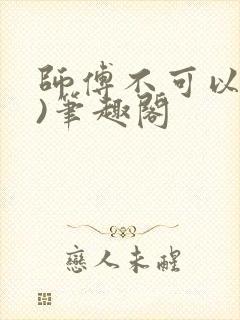 師傅不可以
)筆趣閣
戀人未醒